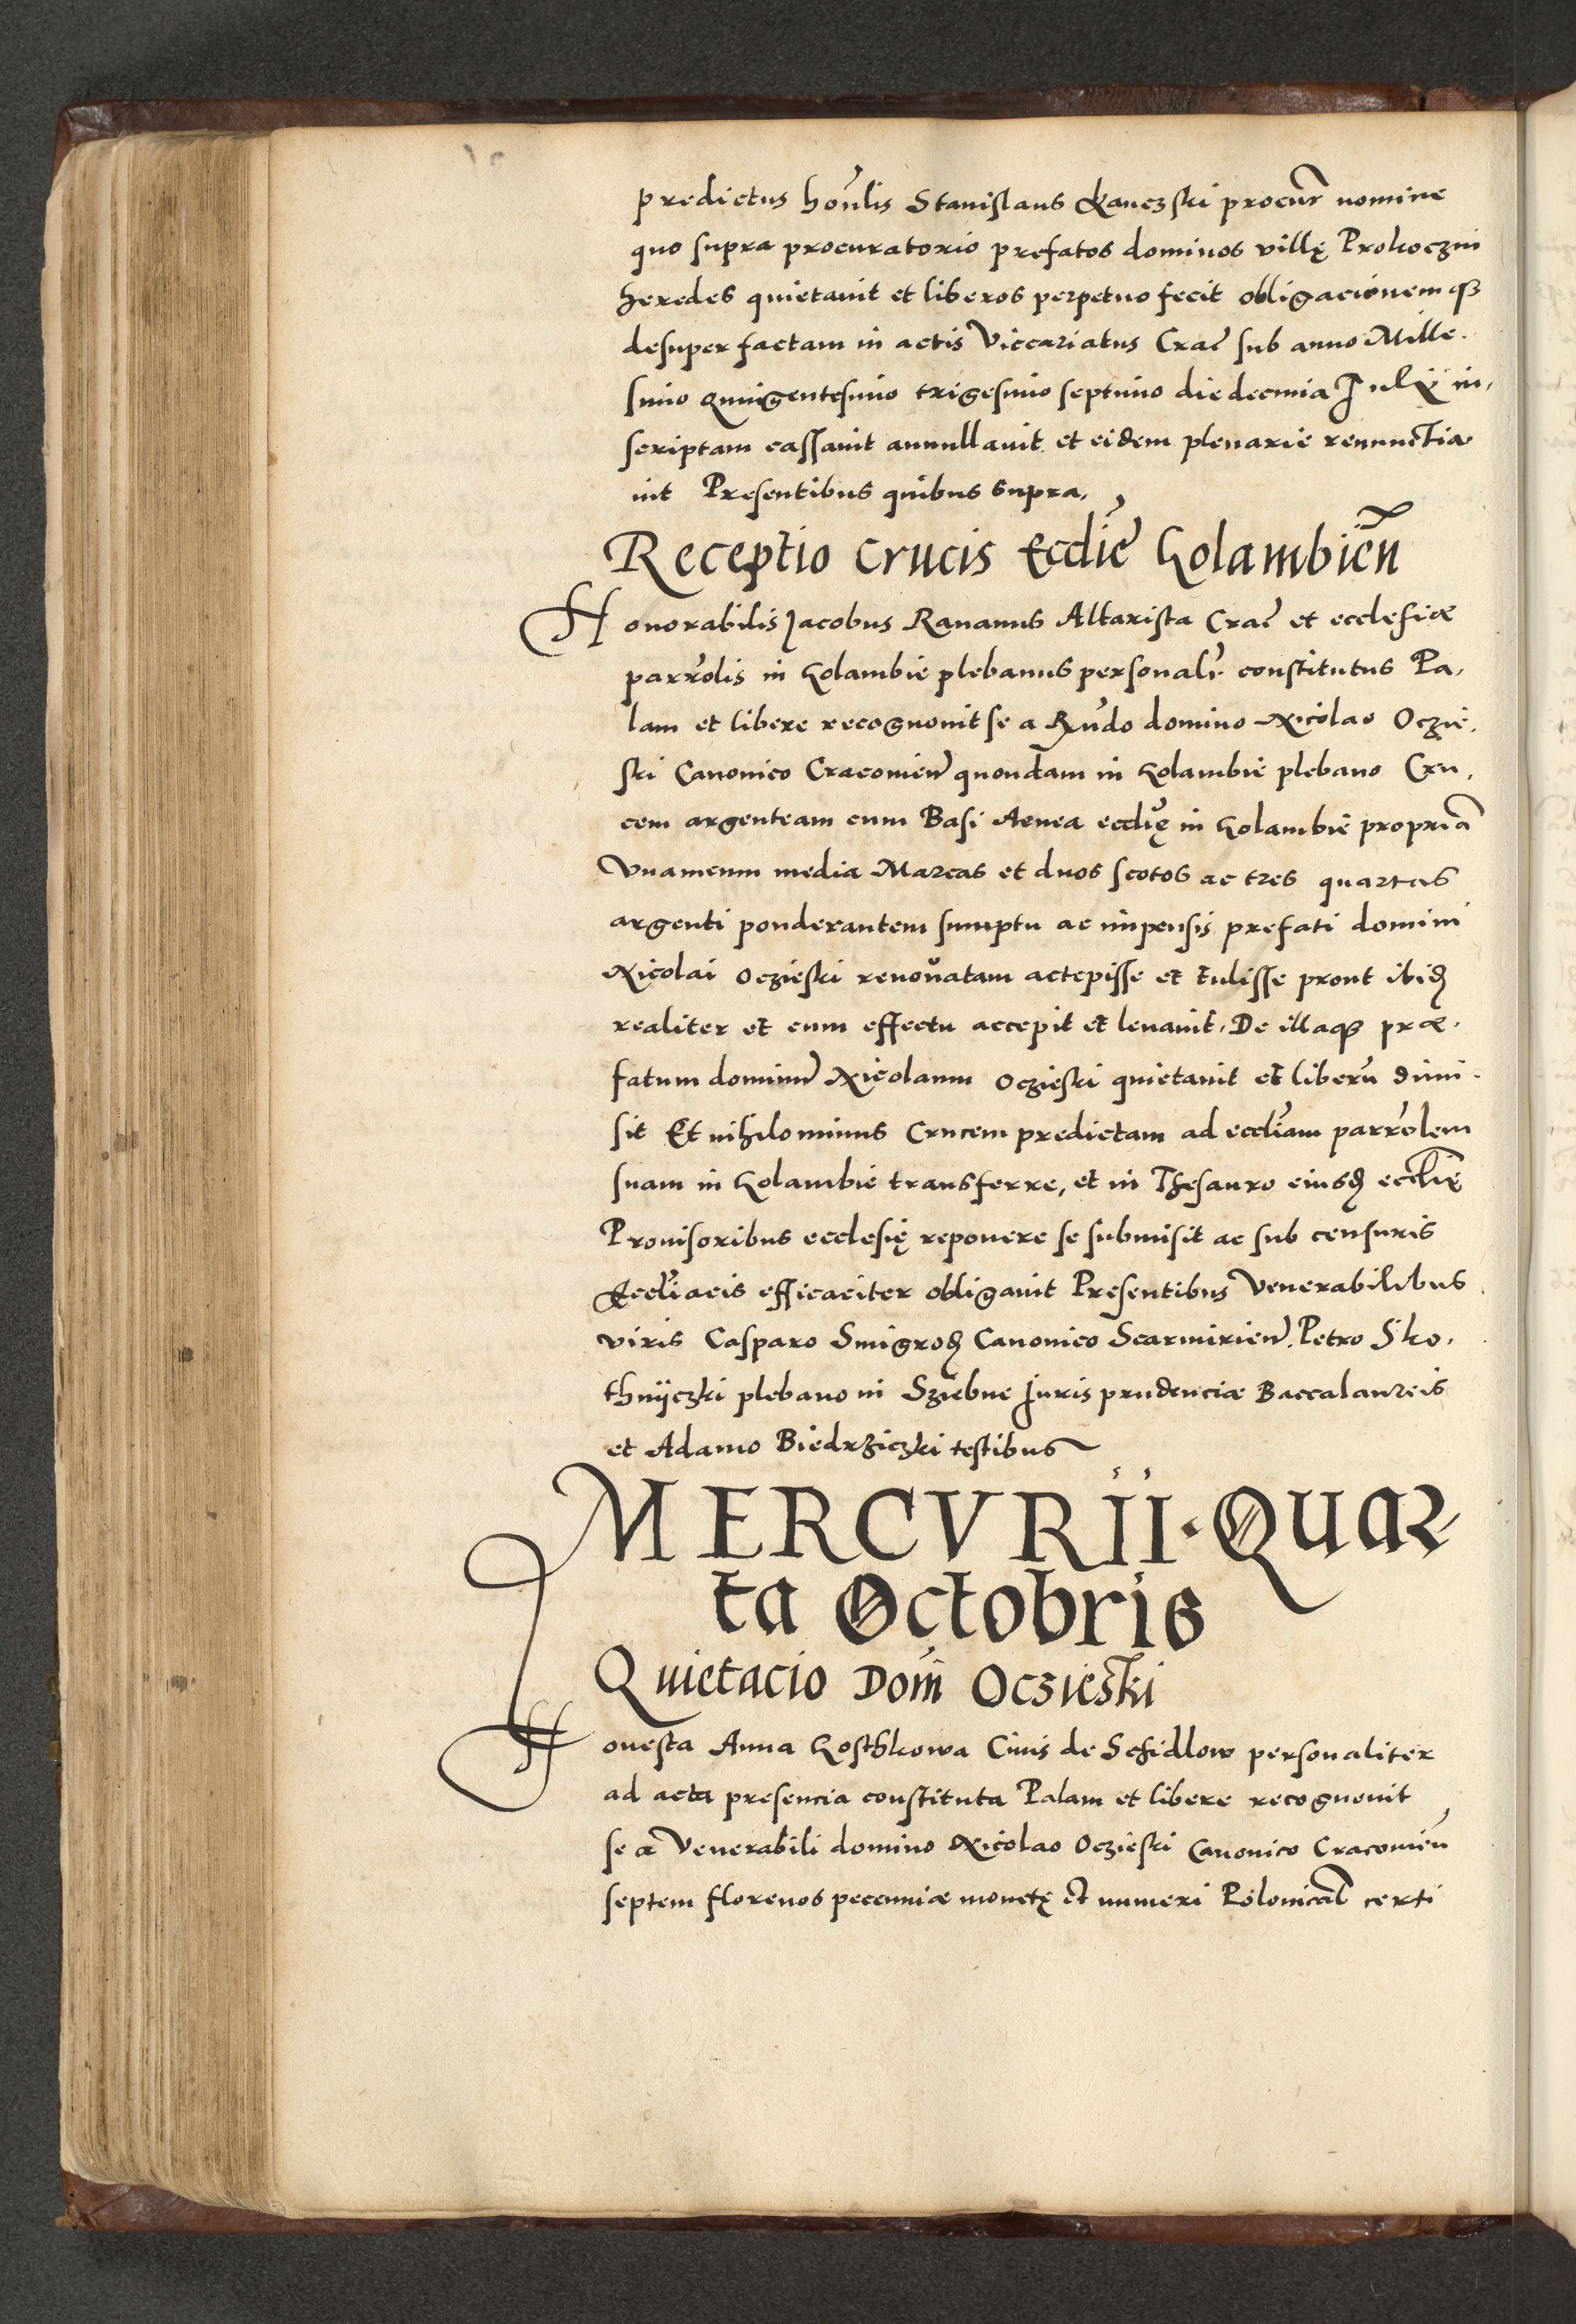 predictus hon̄lis Stanislaus Kanczski procur̄ nomine
quo supra procuratorio prefatos dominos villę Prokoczin
heredes quietauit et liberos perpetuo fecit obligacionemqꝫ
desuper factam in actis Viccariatus Crac̄ sub anno Mille.
simo quingentesimo trigesimo septimo die decima Iulÿ in,
scriptam cassauit annullauit et eidem plenarie renunctia
uit Presentibus quibus supra,
Receptio Crucis Eccl̄ie Golambien̄
Honorabilis Jacobus Rananus Altarista Crac̄ et ecclesiæ
parrōlis in Golambie plebanus personalr̄ constitutus Pa,
lam et libere recognouit se a Rn̄do domino Nicolao Oczie,
ski Canonico Cracouien̄ quondam in Golambie plebano Cru,
cem argenteam cum Basi Aenea eccl̄ię in Golambie propriā
Vnam cum media Marcas et duos scotos ac tres quartas
argenti ponderantem sumptu ac impensis prefati domini
Nicolai Oczieski renouatam actepisse et tulisse prout ibid̄
realiter et cum effectu accepit et leuauit, De illaqꝫ præ.
fatum dominū Nicolaum Oczieski quietauit et liberū dimi.
sit Et nihilominus Crucem predictam ad eccl̄iam parrōlem
suam in Golambie transferre, et in Thesauro eiusd̄ eccl̄ię
Prouisoribus ecclesię reponere se submisit ac sub censuris
Eccl̄iacis efficaciter obligauit Presentibus Venerabilibus
viris Casparo Smigrod̄ Canonico Scarmirien̄. Petro Sko,
thnÿczki plebano in Sziebne Juris prudenciæ Baccalaureis
et Adamo Biedrziczki testibus
MERCVRII · Quar
ta Octobris
Quietacio Dom̄ Oczieski
Honesta Anna Gosthkowa Ciuis de Schidlow personaliter
ad acta presencia constituta Palam et libere recognouit
se a Venerabili domino Nicolao Oczieski Canonico Cracouien̄
septem florenos peccuniæ monetę et numeri Polonical̄ certi